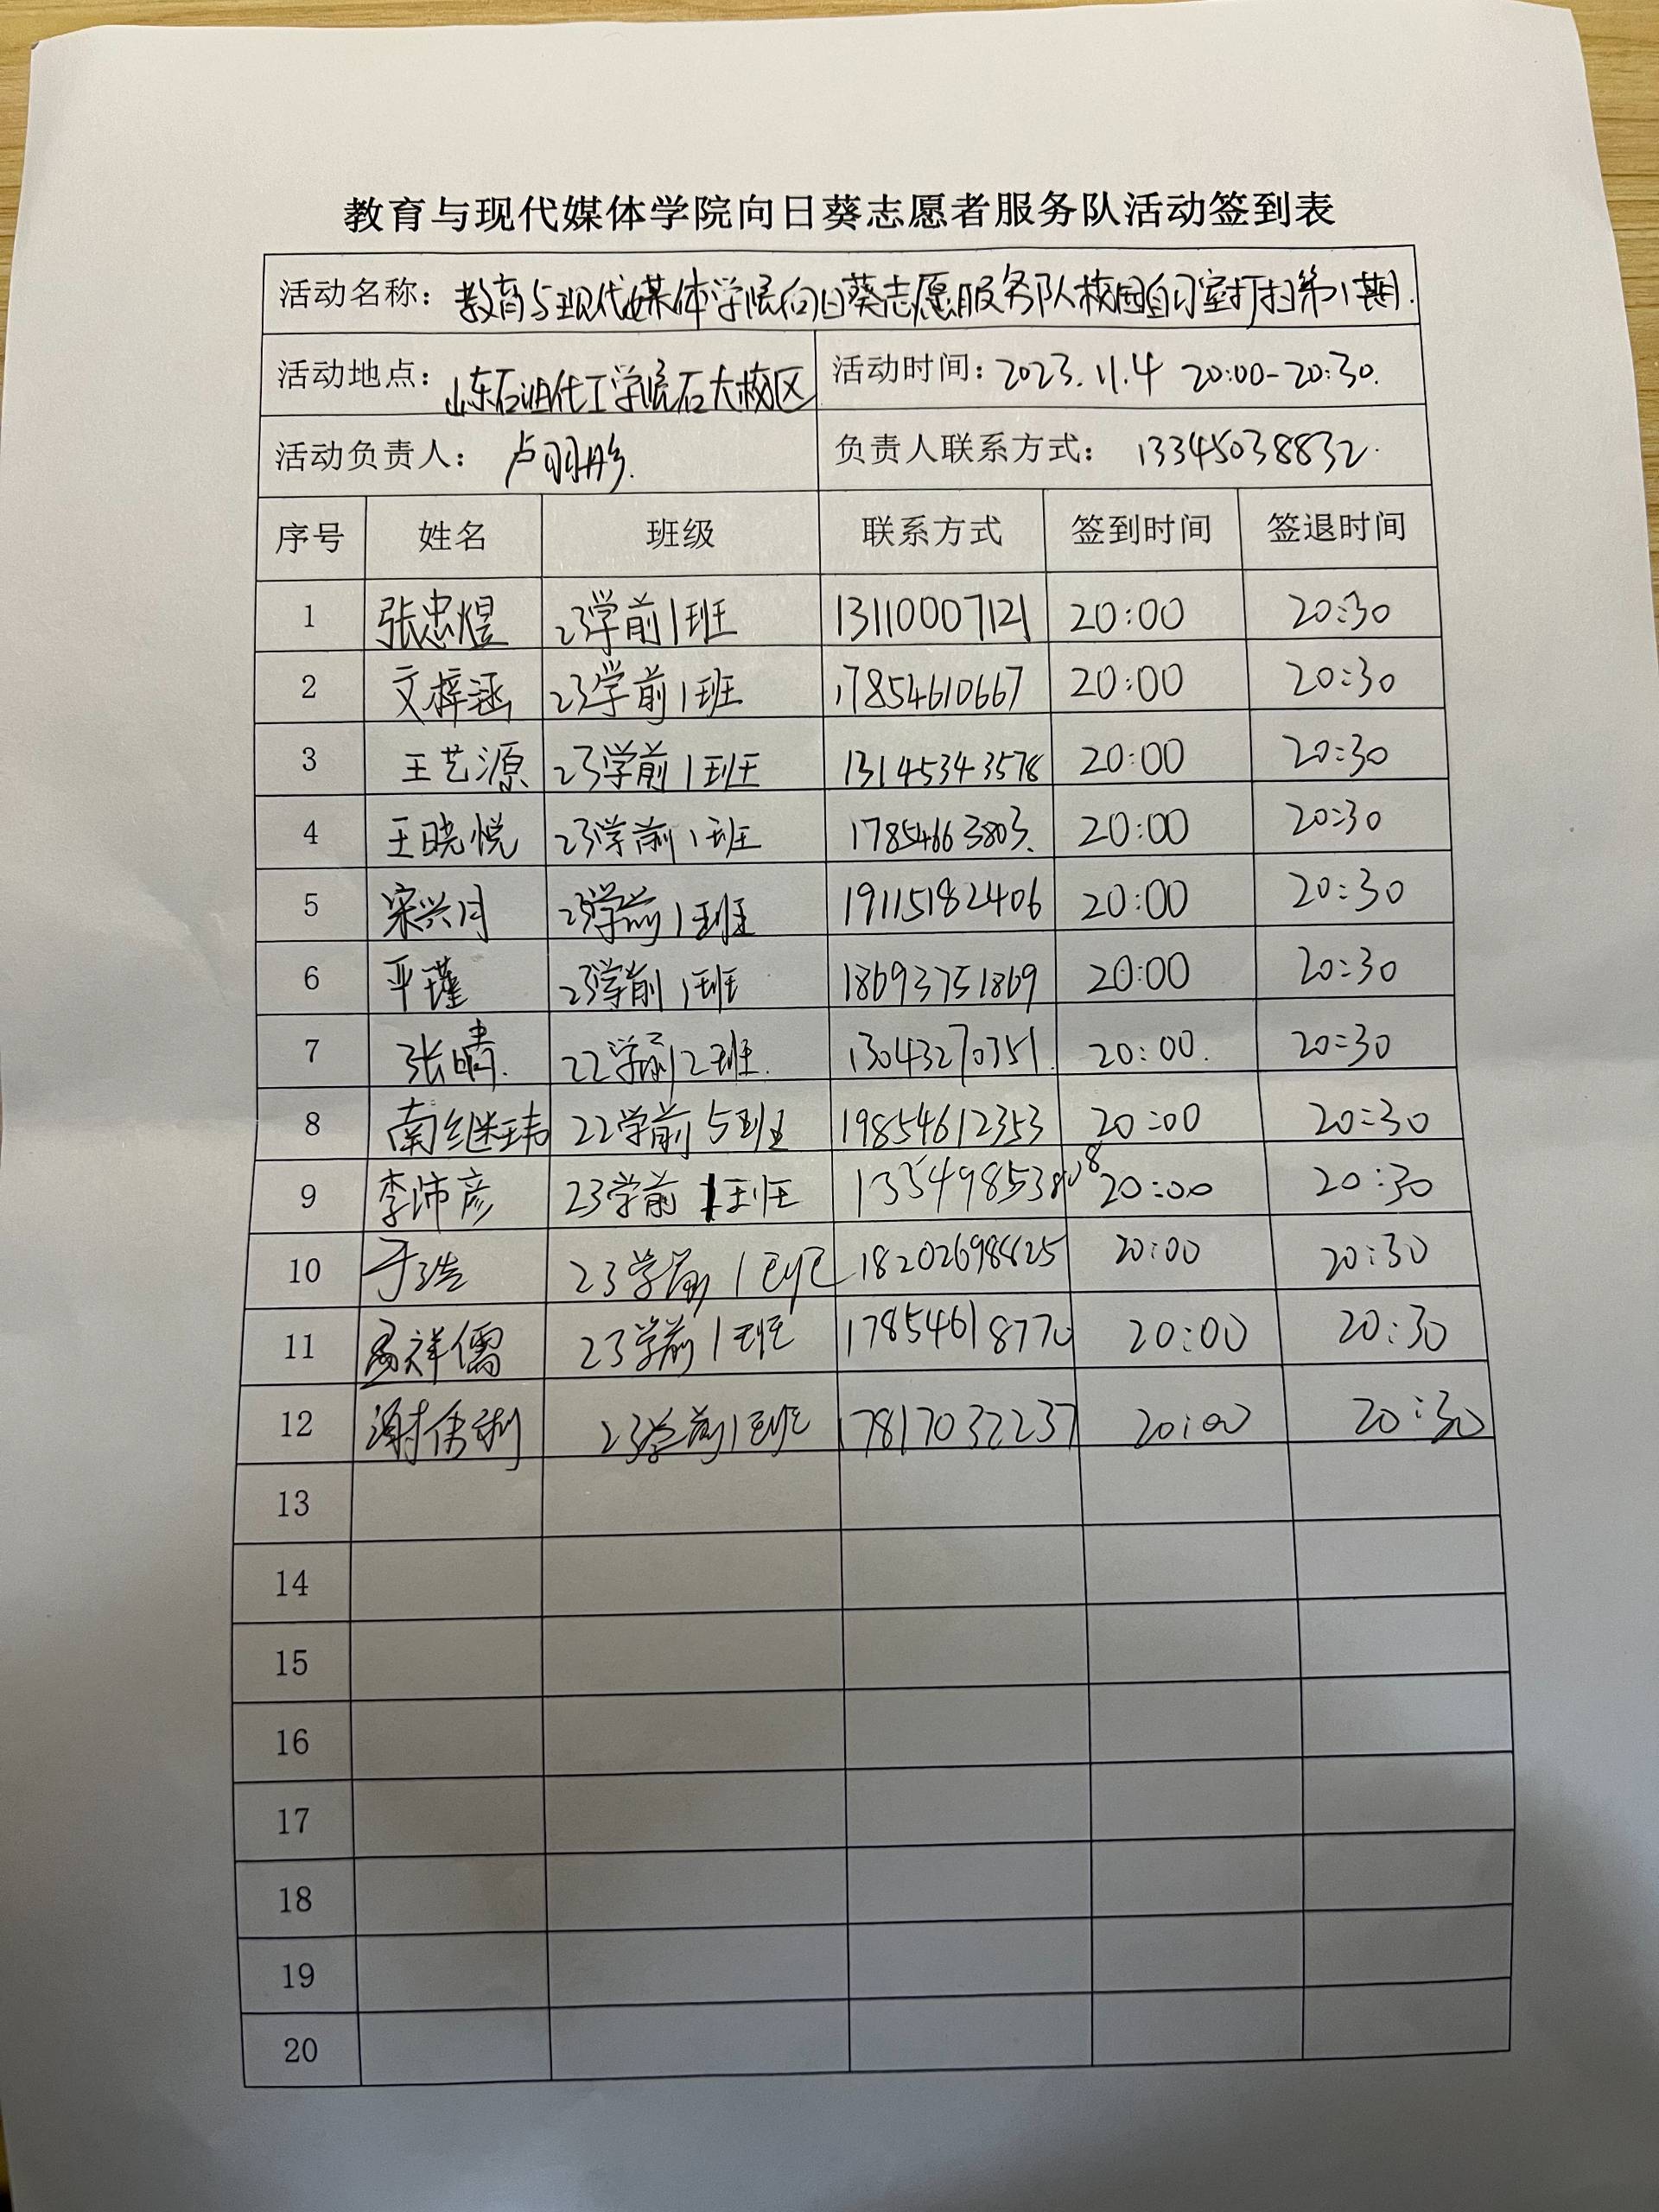 教育与现代媒体学院向日葵志愿者服务队活动签到表
活动名称：教育与现代媒体学院向日葵志愿服务队校园自习室打扫第1期.
活动地点：山东石油化工学院石大校区 活动时间：2023.11.4 20:00-20:30.
活动负责人：卢羽彤. 负责人联系方式：13345038832.
序号 姓名 班级 联系方式 签到时间 签退时间
1 张忠煜 23学前1班 13110007121 20:00 20:30
2 文梓涵 23学前1班 17854610667 20:00 20:30
3 王艺源 23学前1班 13145343578 20:00 20:30
4 王晓悦 23学前1班 17854663803. 20:00 20:30
5 宋兴月 23学前1班 19115182406 20:00 20:30
6 平瑾 23学前1班 18693751869 20:00 20:30
7 张晴. 22学前2班. 13043270751. 20:00. 20:30
8 南继玮 22学前5班 19854612353 20:00 20:30
9 李沛彦 23学前1班 20:00 20:30
10 于浩 23学前1班 20:00 20:30
11 祥儒 23学前1班 17854618770 20:00 20:30
12 谢 23学前1班 17817032237 20:00 20:30
13
14
15
16
17
18
19
20